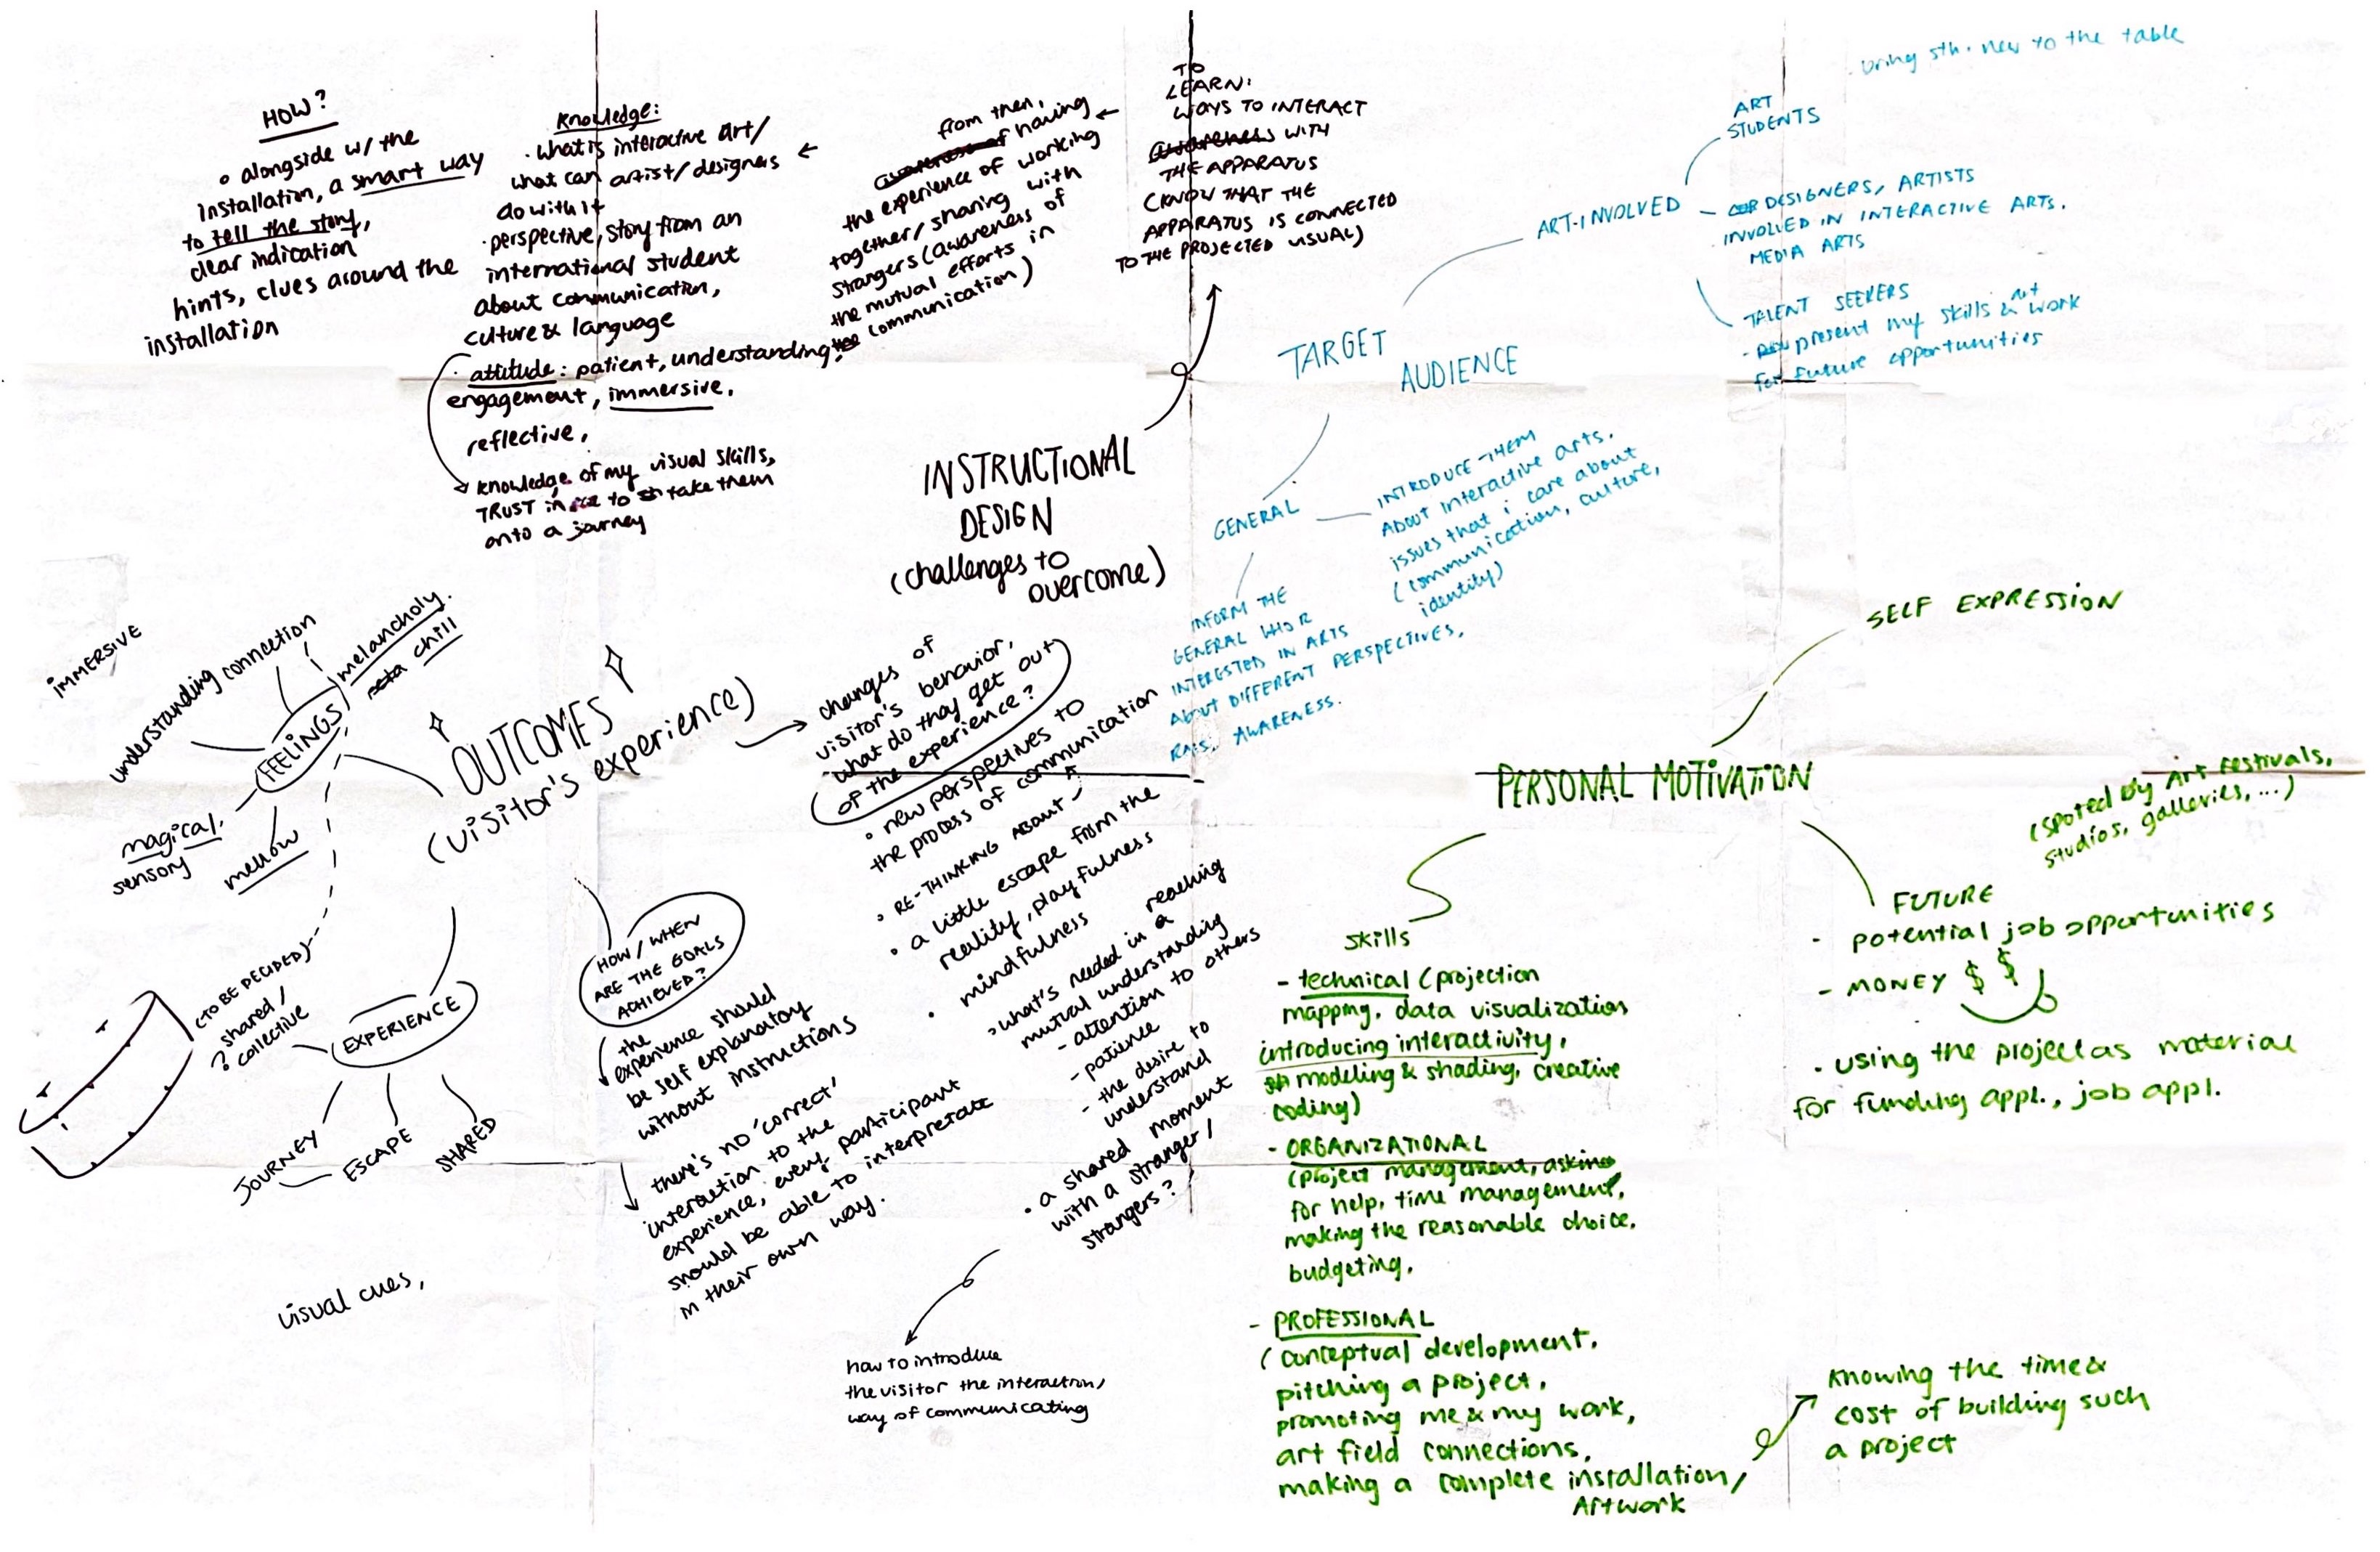 HOW?
• alongside w/ the
installation, a smart way
to tell the story,
clear indication
hints, clues around the
installation
Knowledge:
. what is interactive art/
what can artist/designers
do with it
. perspective, story from an
international student
about communication,
culture & language
. attitude: patient, understanding,
engagement, immersive,
reflective,
knowledge of my visual skills,
TRUST in me to take them
onto a journey
from then,
having
the experience of working
together/sharing with
strangers (awareness of
the mutual efforts in
the communication)
TO
LEARN:
WAYS TO INTERACT
WITH
THE APPARATUS
(KNOW THAT THE
APPARATUS IS CONNECTED
TO THE PROJECTED VISUAL)
INSTRUCTIONAL
DESIGN
(challenges to
overcome)
TARGET
AUDIENCE
ART-INVOLVED
ART
STUDENTS
bring sth. new to the table
- DESIGNERS, ARTISTS
INVOLVED IN INTERACTIVE ARTS.
MEDIA ARTS
TALENT SEEKERS
- present my skills & art work
for future opportunities
GENERAL
INTRODUCE THEM
ABOUT interactive arts.
issues that i care about
(communication, culture,
identity)
INFORM THE
GENERAL WHO R
INTERESTED IN ARTS
ABOUT DIFFERENT PERSPECTIVES,
AWARENESS.
OUTCOMES
(visitor's experience)
FEELINGS
IMMERSIVE
understanding connection
melancholy.
chill
magical.
sensory
mellow
(TO BE DECIDED)
shared/
? collective
EXPERIENCE
JOURNEY
ESCAPE
SHARED
visual cues,
changes of
visitor's behavior,
what do they get out
of the experience?
• new perspectives to
the process of communication
• RE-THINKING ABOUT
• a little escape from the
reality, playfulness
• mindfulness
• what's needed in reaching a
mutual understanding
- attention to others
- patience
- the desire to
understand
• a shared moment
with a stranger/
strangers?
how to introduce
the visitor the interaction,
way of communicating
HOW/WHEN
ARE THE GOALS
ACHIEVED?
the
experience should
be self explanatory
without instructions
there's no 'correct'
interaction to the
experience, every participant
should be able to interpretate
in their own way.
PERSONAL MOTIVATION
SELF EXPRESSION
skills
- technical (projection
mapping, data visualization
introducing interactivity,
modeling & shading, creative
coding)
- ORGANIZATIONAL
(project management, asking
for help, time management,
making the reasonable choice,
budgeting,
- PROFESSIONAL
(conceptual development,
pitching a project,
promoting me & my work,
art field connections,
making a complete installation/
Artwork
knowing the time &
cost of building such
a project
FUTURE
(spoted by Art festivals,
studios, galleries, ...)
- potential job opportunities
- MONEY $ $
. using the project as material
for funding appl., job appl.